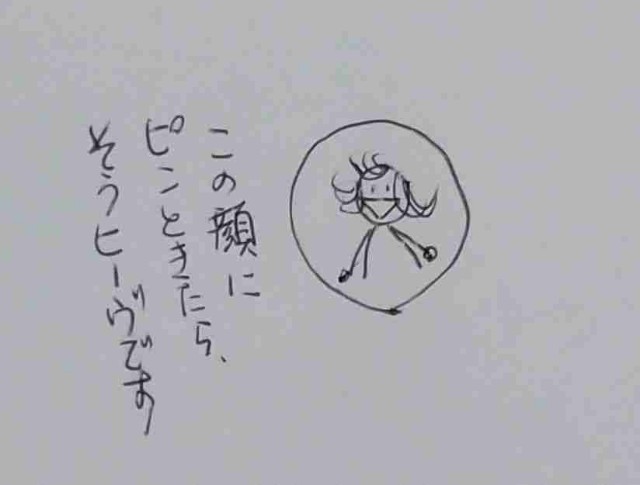 この顔に
ピンときたら、
そうヒーヴです